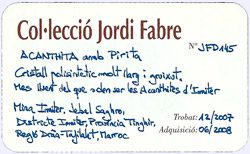 Col·lecció Jordi Fabre
Nº JFD145
ACANTHITA amb Pirita
Cristall polisintètic molt llarg i gruixut.
Més lluent del que solen ser les Acanthites d'Imiter
Mina Imiter, Jebel Saghro,
Districte Imiter, Província Tinghir,
Regió Drâa-Tafilalet, Marroc
Trobat: 12/2007
Adquisició: 06/2008